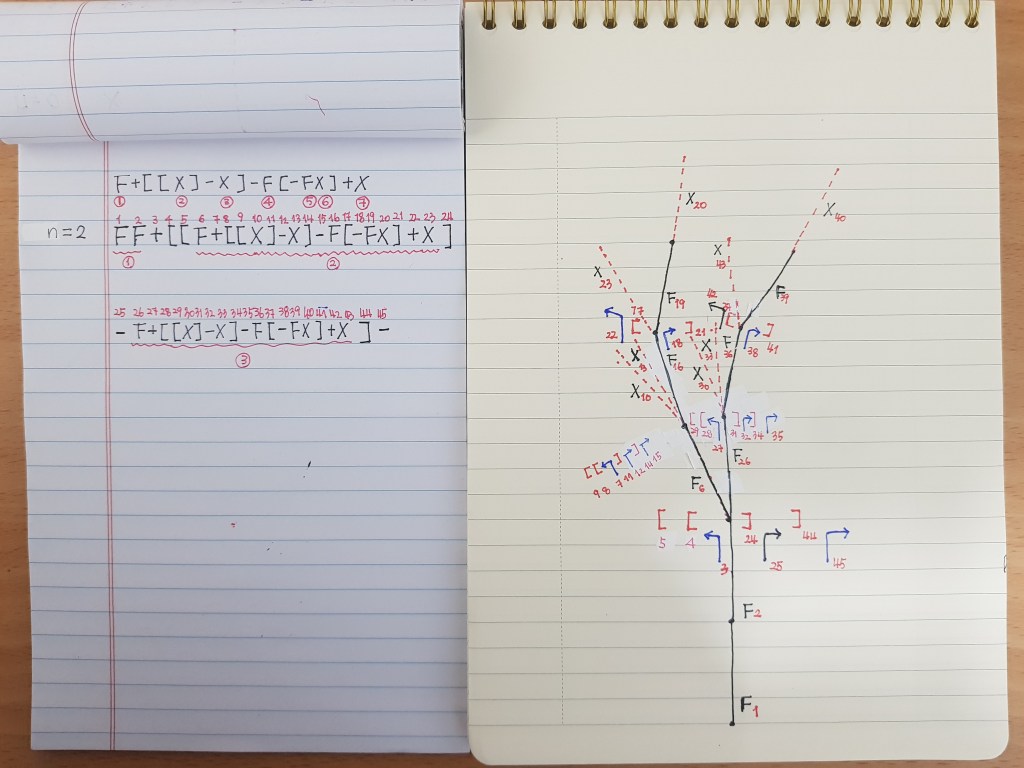 F+[[X]-X]-F[-FX]+X
① ② ③ ④ ⑤ ⑥ ⑦
1 2 3 4 5 6 7 8 9 10 11 12 13 14 15 16 17 18 19 20 21 22 23 24
n=2 FF+[[F+[[X]-X]-F[-FX]+X]
① ②
25 26 27 28 29 30 31 32 33 34 35 36 37 38 39 40 41 42 43 44 45
-F+[[X]-X]-F[-FX]+X]-
③
X20
X40
X
23
X
43
F19
F39
22 [ 17
18
] 21
F16
X
X10
X
33
X
30
F
36
38
] 41
[ [ ] ]
29 28 27 31 32 34 35
F26
[[ ] ]
9 8 7 11 12 14 15
F6
[ [ ] ]
5 4 3 24 25 44 45
F2
F1